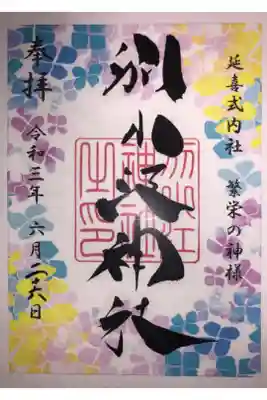 延喜式内社 繁栄の神様
別小江神社
奉拝
令和三年 六月二十六日
別小江
神社
之印